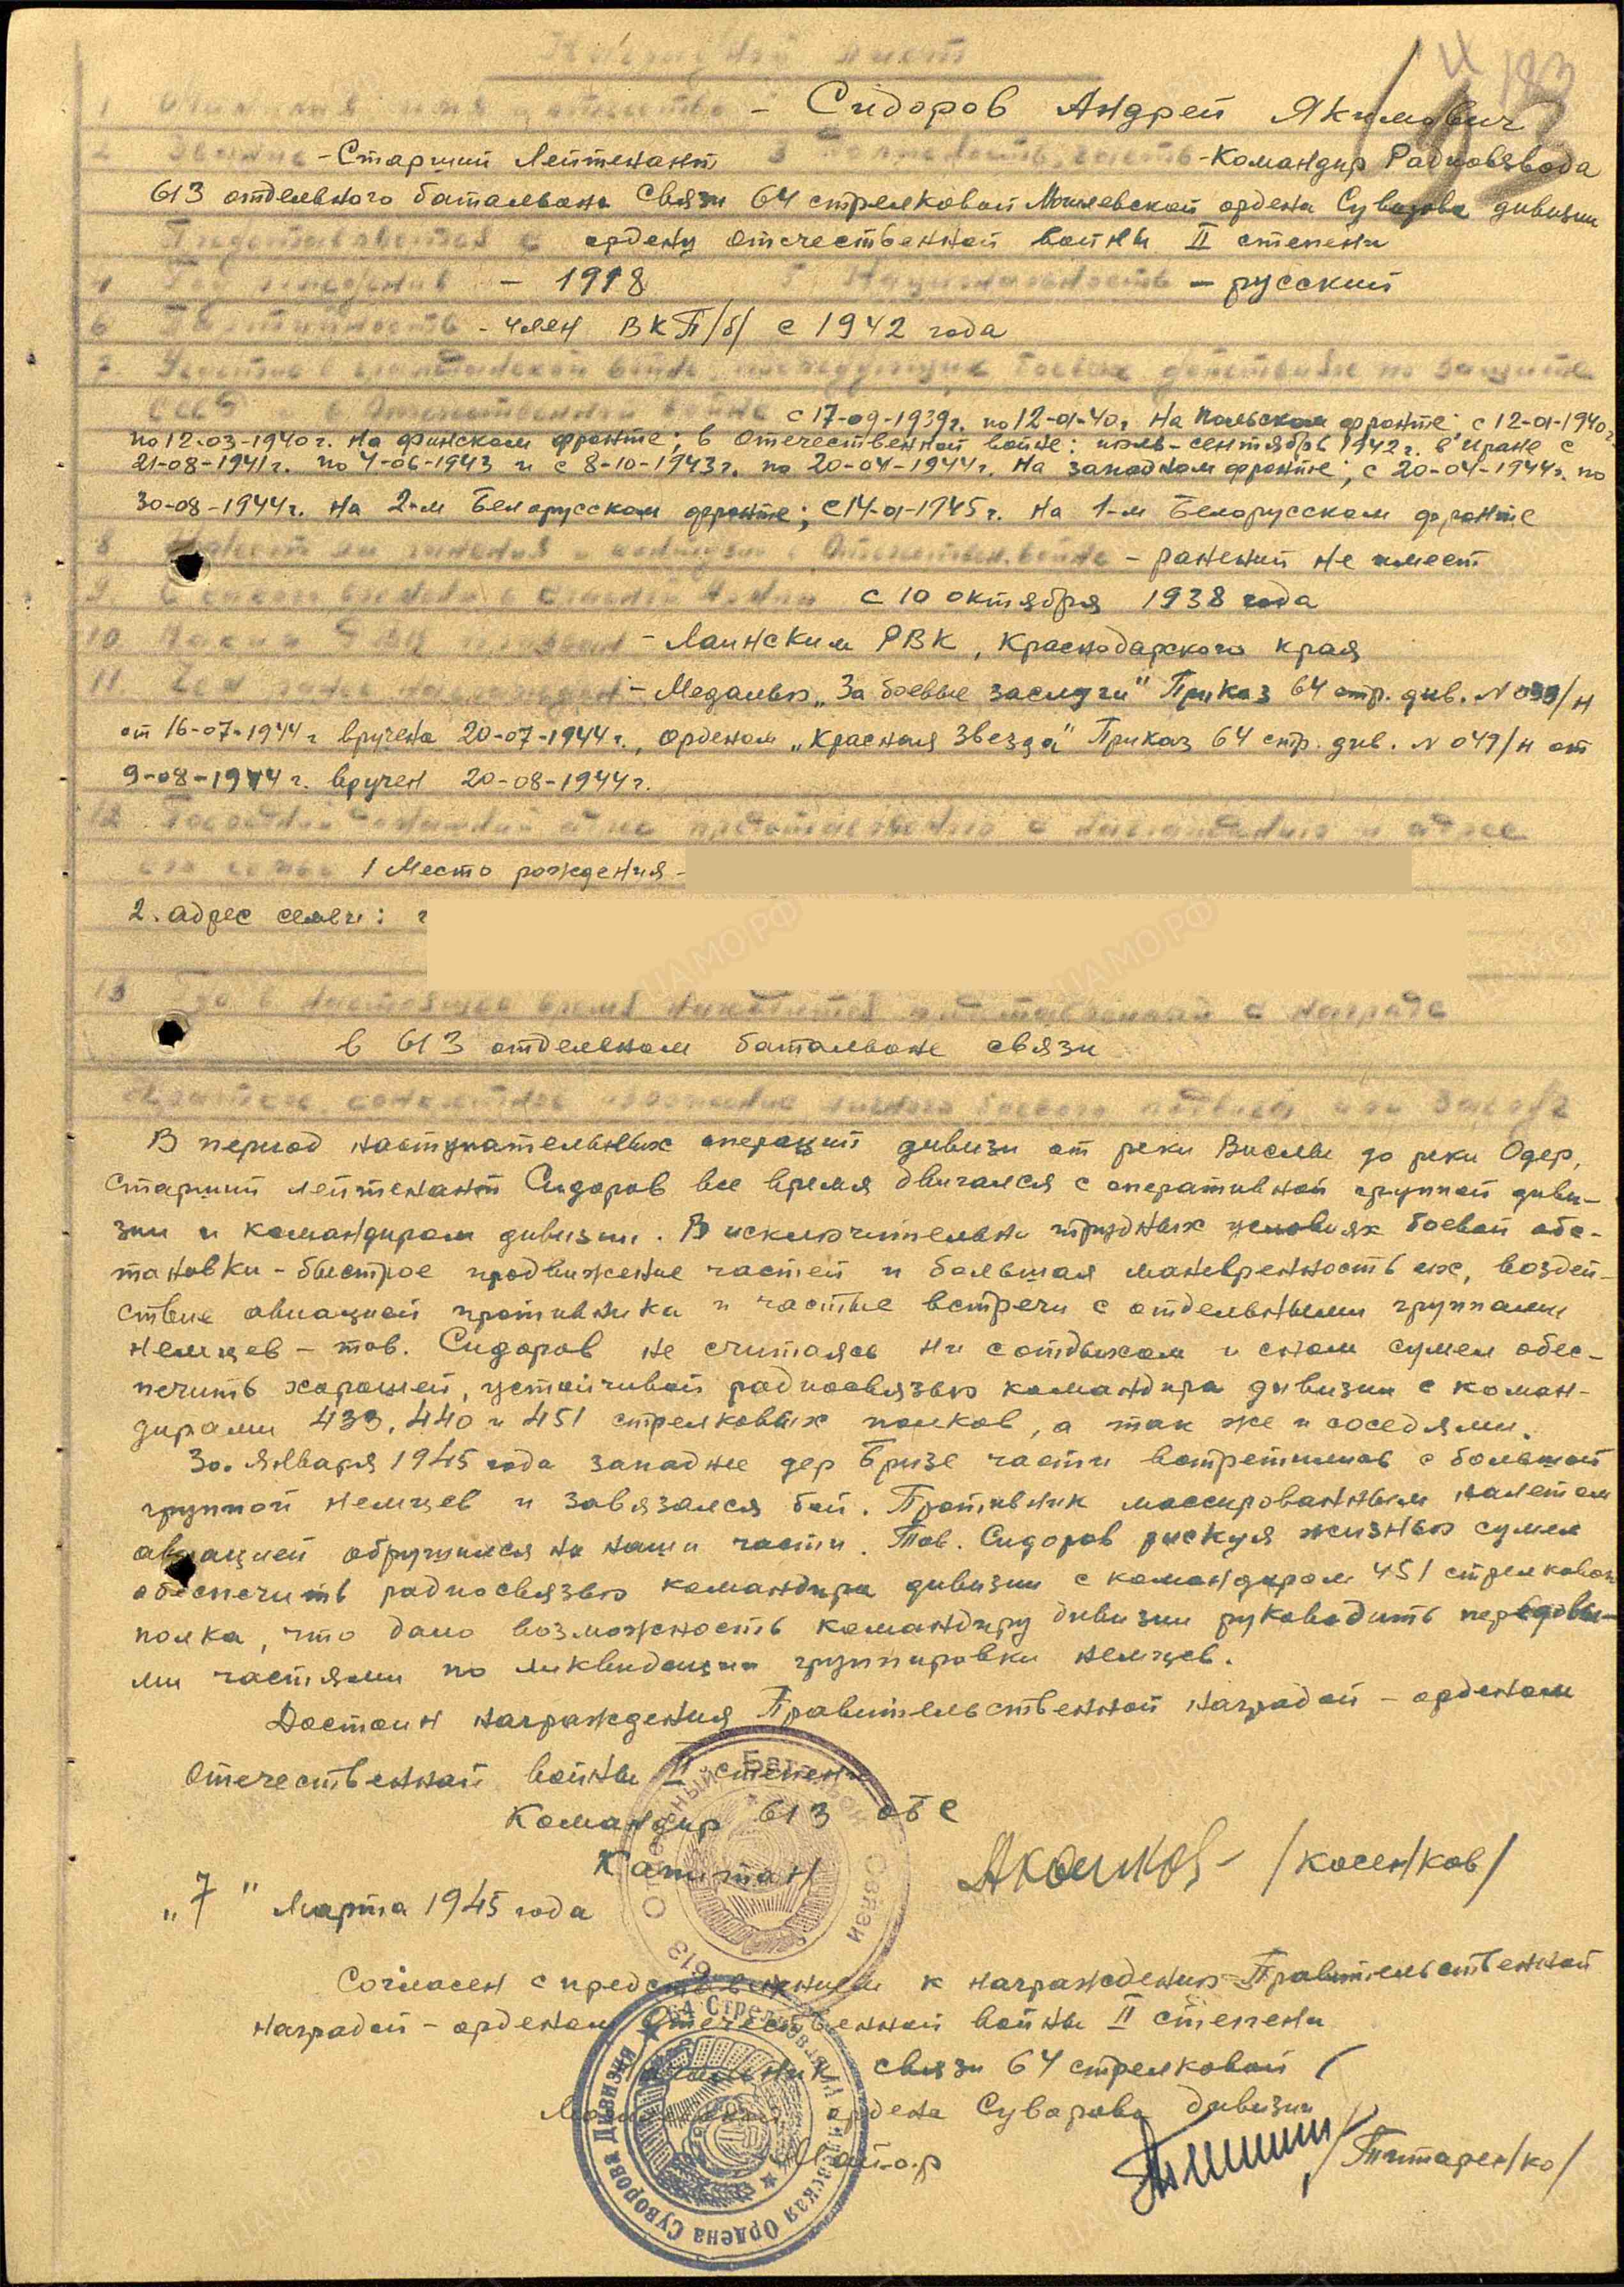 Наградной лист
1 Фамилия имя и отчество – Сидоров Андрей Якимович
2 Звание – Старший Лейтенант 3 Должность, часть – Командир Радиовзвода
613 отдельного батальона Связи 64 стрелковой Могилевской ордена Суворова дивизии
Представляется к ордену Отечественной войны II степени
4 Год рождения – 1918 5 Национальность – русский
6 Партийность – член ВКП/б/ с 1942 года
7. Участие в гражданской войне, последующих боевых действиях по защите
СССР и в Отечественной войне с 17-09-1939г. по 12-01-40г на Польском фронте; с 12-01-1940г.
по 12-03-1940г. на финском фронте; в Отечественной войне: июль-сентябрь 1942г. в Иране с
21-08-1941г. по 4-06-1943 и с 8-10-1943г. по 20-04-1944г. на западном фронте; с 20-04-1944г. по
30-08-1944г. на 2-м Белорусском фронте; с 14-01-1945г. на 1-м Белорусском фронте
8 Имеет ли ранения и контузии в Отечествен. войне – ранений не имеет
9. С какого времени в Красной Армии с 10 октября 1938 года
10 Каким РВК призван – РВК, Краснодарского края
11. Чем ранее награжден – Медалью „За боевые заслуги" Приказ 64 стр. див. N /н
от 16-07-1944г вручена 20-07-1944г., орденом „Красная Звезда" Приказ 64 стр. див. N 049/н от
9-08-1944г. вручен 20-08-1944г.
12 Постоянный домашний адрес представляемого к награждению и адрес
его семьи 1 Место рождения –
2. адрес семьи: г
13 Где в настоящее время находится представленный к награде
в 613 отдельном батальоне связи
Краткое, конкретное изложение личного боевого подвига или заслуг
В период наступательных операций дивизи от реки Вислы до реки Одер,
старший лейтенант Сидоров все время двигался с оперативной группой диви-
зии и командиром дивизии. В исключительно трудных условиях боевой обс-
тановки – быстрое продвижение частей и большая маневренность их, воздей-
ствие авиацией противника и частые встречи с отдельными группами
немцев – тов. Сидоров не считаясь ни с отдыхом и сном сумел обес-
печить хорошей, устойчивой радиосвязью командира дивизии с коман-
дирами 433, 440 и 451 стрелковых полков, а так же и соседями.
30. Января 1945 года западнее дер Бризе части встретились с большой
группой немцев и завязался бой. Противник массированным налетом
авиацией обрушился на наши части. Тов. Сидоров рискуя жизнью сумел
обеспечить радиосвязью командира дивизии с командиром 451 стрелкового
полка, что дало возможность командиру дивизии руководить передовы-
ми частями по ликвидации группировки немцев.
Достоин награждения Правительственной наградой – орденом
Отечественной войны II степени
Командир 613 обс
Капитан /Косенков/
„7" Марта 1945 года
Отдельный Батальон Связи 613
Согласен с представлением к награждению Правительственной
наградой – орденом Отечественной войны II степени
Начальник связи 64 стрелковой
Могилевской ордена Суворова дивизии
Майор /Титаренко/
64 Стрелковая Могилевская Ордена Суворова Дивизия